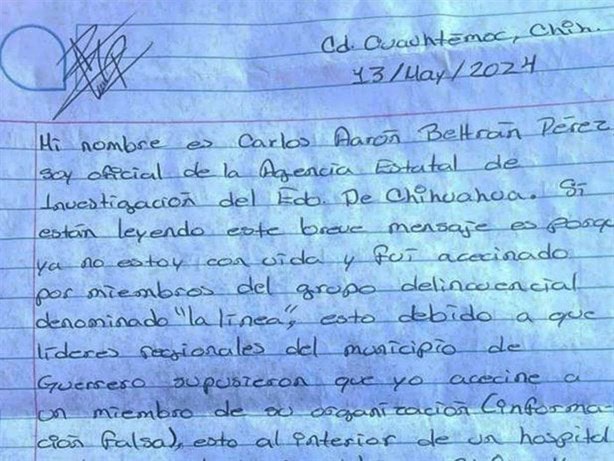 Cd. Cuauhtémoc, Chih.
13/May/2024
Mi nombre es Carlos Aarón Beltrán Pérez
soy oficial de la Agencia Estatal de
Investigación del Edo. De Chihuahua. Si
están leyendo este breve mensaje es porqu
ya no estoy con vida y fui acecinado
por miembros del grupo delincuencial
denominado "la linea", esto debido a que
líderes regionales del municipio de
Guerrero supusieron que yo acecine a
un miembro de su organización (informa-
ción falsa), esto al interior de un hospital